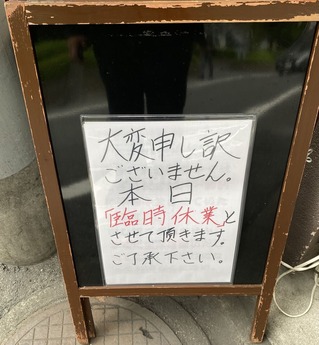 大変申し訳
ございません。
本日
「臨時休業」と
させて頂きます。
ご了承下さい。